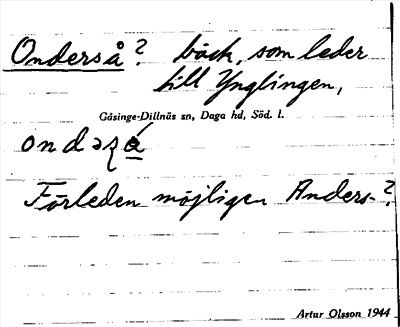 Onderså? bäck, som leder
till Ynglingen,
Gåsinge-Dillnäs sn, Daga hd, Söd. l.
Förleden möjligen Anders-?
Artur Olsson 1944